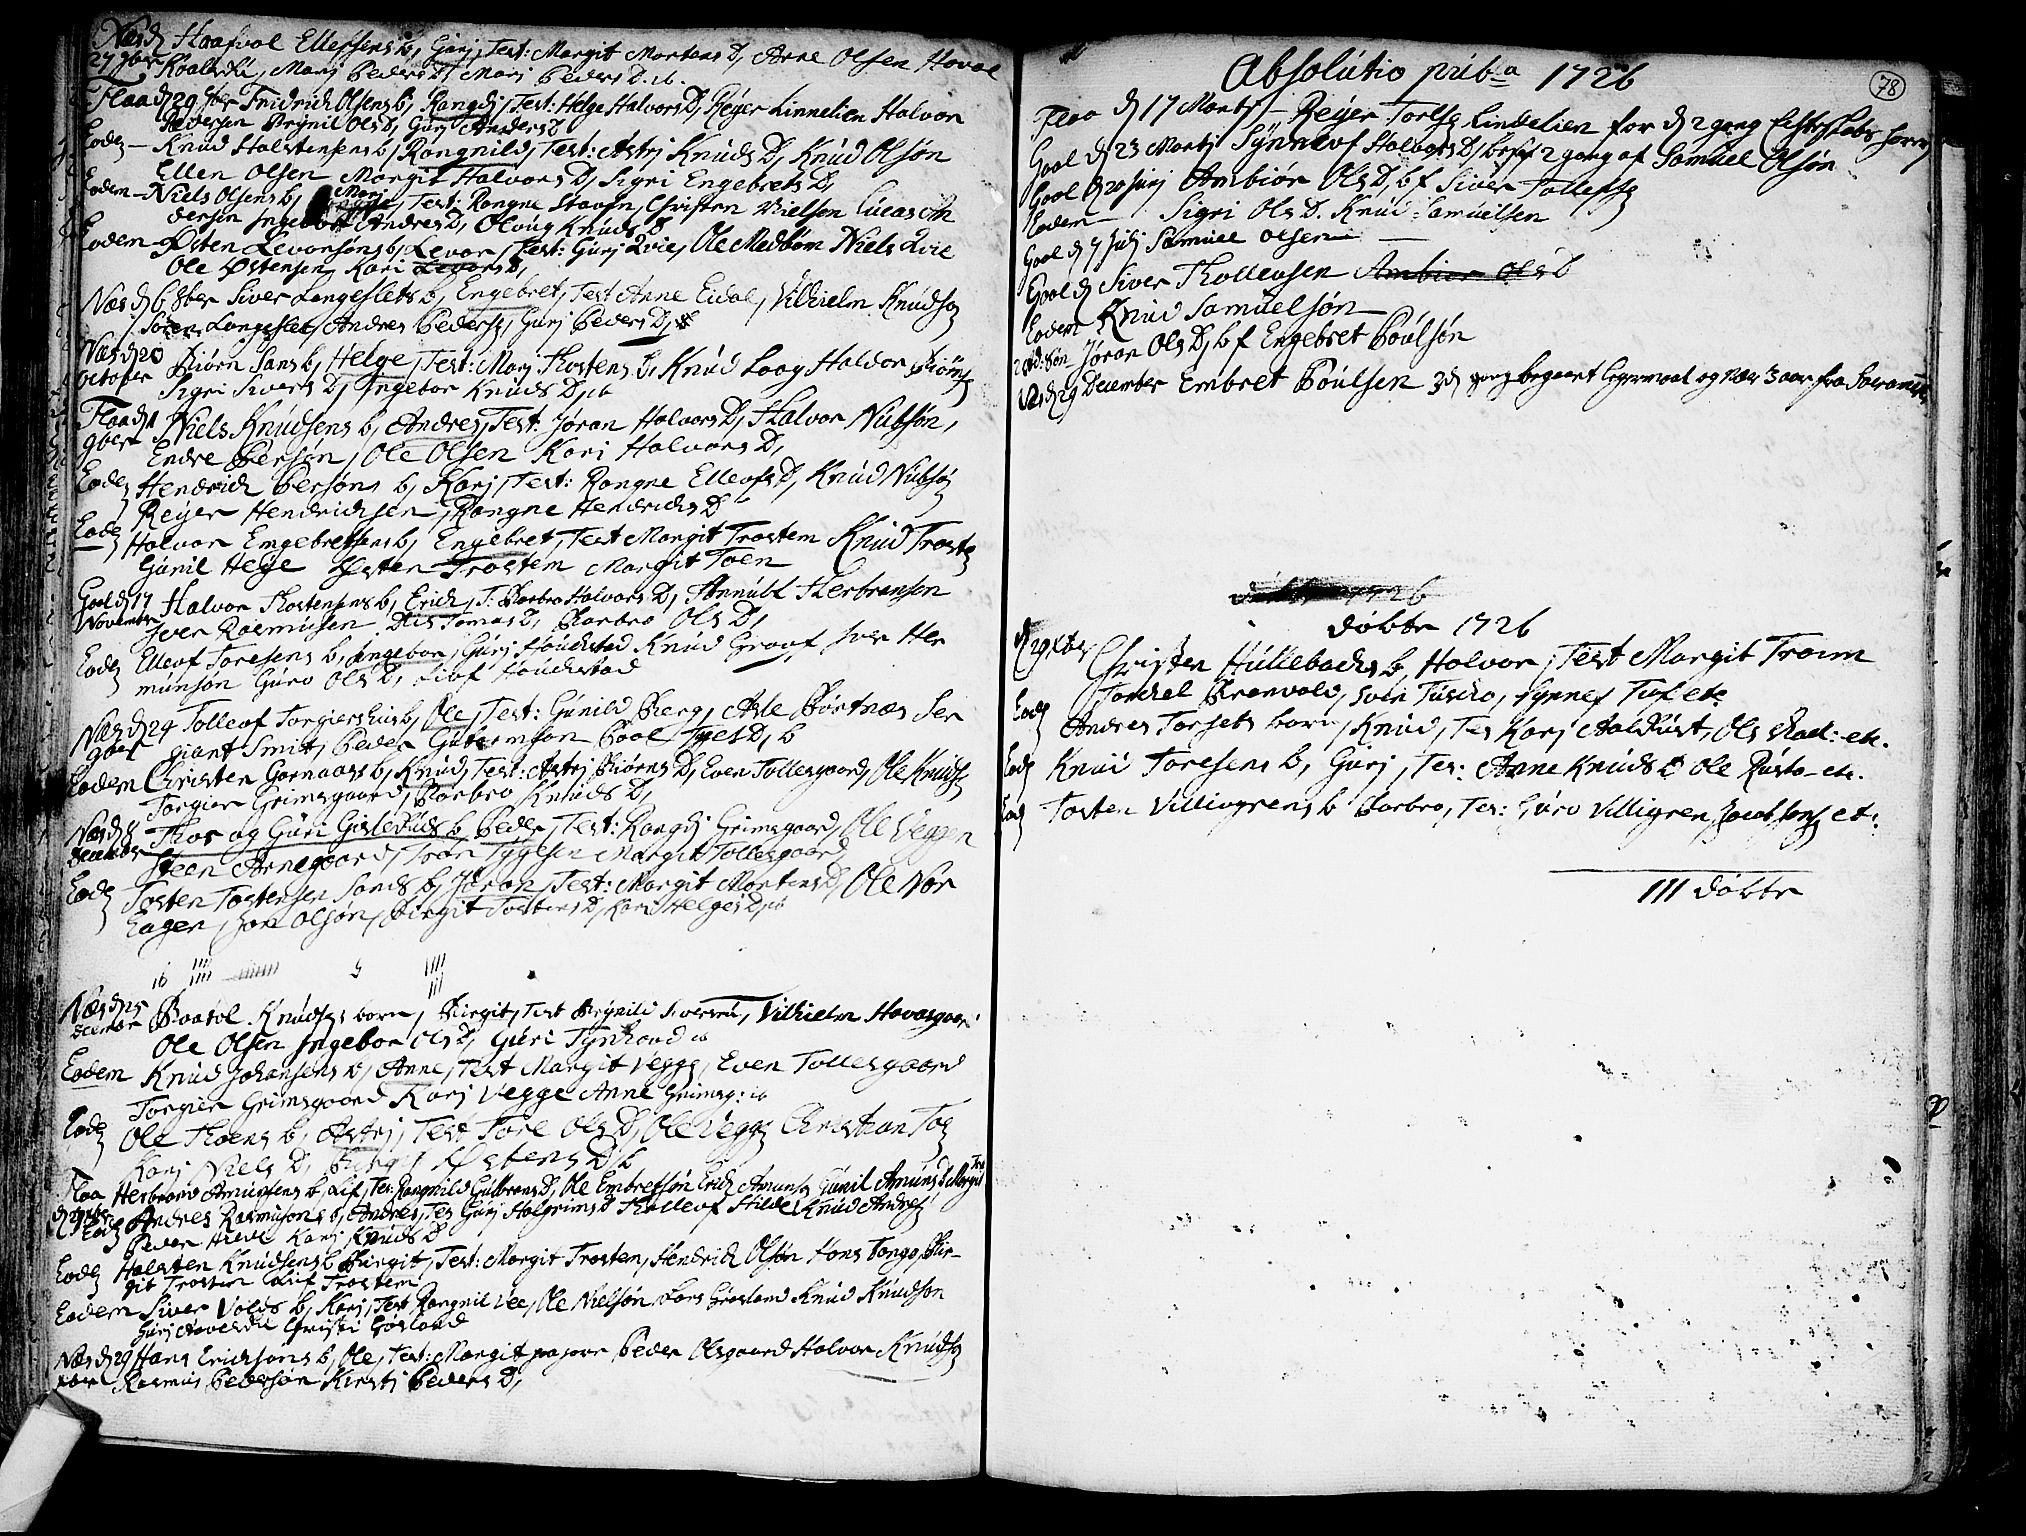 Næs d Haafvol Ellefsens b, Guri, Test: Margit Mortens D, Arne Olsen Hovol
27 7ber Roallsru, Mari Peders D, Mari Peders D. ib.
Flaa d 29 7ber Fridrich Olsens b, Rangdi, Test: Helge Halvors D, Reyer Linnelien Halvor
Pedersen Brynil Ols D, Guri Anders D
Eode – Knud Halstensens b, Rongnild, Test: Astri Knuds D, Knud Olsøn
Ellen Olsen Margit Halvors D, Sigri Engebrets D,
Eodem – Niels Olsens b, Mari, Test: Rangne Staven, Christen Nielsen Lucas An
dersen Ingebor Andres D, Oloug Knuds D
Eodem – Østen Levorsøns b, Levor, Test: Guri Qvie, Ole Medbøen Niels Qvie
Ole Østensen, Kari Levors D,
Næs d 6 8ber Siver Langeslets b, Engebret, Test Anne Eidal, Vilhielm Knuds
Søren Langeslet, Andres Peders, Guri Peders D,
Næs d 20 Biørn Sans b, Helge, Test: Mari Tostens D, Knud Laag Haldor Biørns
October Sigri Sivers D, Ingebor Knuds D, ib
Flaa d 1 Niels Knudsens b, Andres, Test: Jøran Halvors D, Halvor Nubsøn,
9ber Endre Persen, Ole Olsen Kari Halvors D,
Eode Hendrich Persøns b, Kari, Test: Rangne Ellefs D, Knud Nubsø
Reyer Hendrichsen, Rangne Hendrichs D
Eode Halvor Engebretsens b, Engebret, Test Margit Trostem Knud Troste
Gunil Helge Østen Trostem Margit Toen
Gool d 17 Halvor Tostensens b, Erich, T: Barbro Halvors D, Amund Herbransøn
November Iver Rasmusen Tomas D, Barbro Ols D,
Eode Ellef Toresens b, Ingebor, Guri Houchstad Knud Graaf Iver Her
munsøn Guro Ols D, Liaf Houchstad
Næs d 24 Tollef Torgiershus b, Ole, Test: Gunild Berg, Asle Børtnæs Ser
9ber giant Smit, Peder Gutormsøn Paal Tyes D, b
Eodem Christen Garnaas b, Knud, Test: Astri Biørns D, Even Tollesgaard, Ole Knuds
Torgier Grimsgaard, Barbro Knuds D,
Næs d 8 Thor og Guri Gisleruds b, Peder, Test: Rangdi Grimsgaard, Ole Veggen
December Steen Arnegaard, Tygesen Margit Tollesgaard
Eode Tosten Tostensen Sands b, Jøran, Test: Margit Mortens D, Ole Nor
Eagen, Jon Olsøn, Birgit Tostens D, Kari Helges D, ib
16
Næs d 25 Baatol Knuds born, Birgit, Test Brynild Vilhielm Havasgaar
December Ole Olsen Ingebor Ols D, Guri Tynhovd ib
Eodem Knud Johansens b, Anne, Test Margit Vegge, Even Tollesgaard
Torgier Grimsgaard Kari Vegge Anne Grimsg: ib
Eode Ole Thoens b, Astri, Test Tore Ols D, Ole Vegge Christian Toe
Kari Niels D, Birgit Østens D,
Flaa Herbrand Amunsens b, Lif, Tes: Rangnild Gulbrans D, Ole Embretsøn Erich Amuns Gunil Amuns D Margit
Eode Andres Rasmusøns b, Andres, Tes Guri Halgrims D Tollef Hilde Knud Andres
Peder Kari Knuds D
Eode Halsten Knudsens b Birgit, Test: Margit Trosten, Hendrich Olsøn Hans Tonga Bir–
git Trostem Lif Trostem
Eodem Siver Volds b, Kari, Test Rangnil Vee, Ole Nielsøn Lars Grøsland Knud Knudsøn
Guri Christi Gøsland
Næs d 29 Hans Erichsøns b, Ole, Test: Margit Peder Olsgaard Halvor Knuds
Rasmus Pedersøn Kirsti Peders D,
Absolutio pub:a 1726
78
Flaa d 17 Marti – Reyer Toels Lindelien for d 2 gang
Gool d 23 Marti Synnef Halvors D, bes: 2 gang af Samuel Olsøn
Gool d 20 Juni Ambiør Ols D, b f Siver Tollefs
Eodem – Sigri Ols D. Knud Samuelsen
Gool d 7 Juli Samuel Olsen –
Gool d Siver Thollevsen Ambiør Ols D
Eodem Knud Samuelsøn
Jøran Ols D, b f Engebret Poulsøn
Næs d 29 December Embret Poulsen 3d gang begaaet Legermaal og vær 3 aar fra Sacrament
1726
døbte 1726
d 29 xber Christen Hullebachs b, Halvor, Test Margit Traim
Torchel Branvold, Sven Tuscho, Synnef Tuf etc
Eode Andres Torsets barn, Knud, Tes Kari Ols etc.
Eode Knud Toresens b, Guri, Tes: Anne Knuds D Ole Rusto etc.
Eode Tosten Villiogrens b Barbro, Tes: Guro Villigren, Jacob etc:
111 døbte